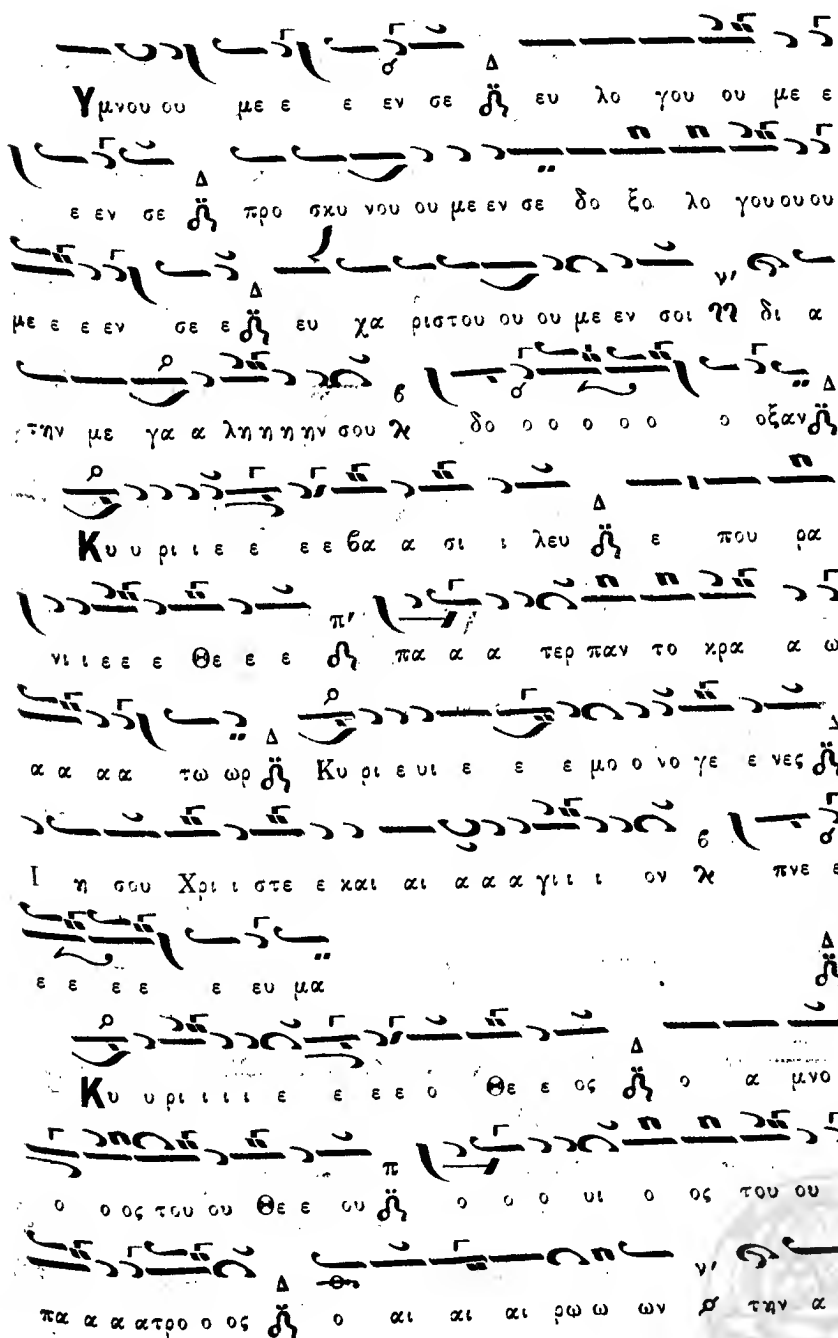 Υμνου ου με ε ε εν σε Δ ευ λο γου ου με ε
ε εν σε Δ προ σκυ νου ου με εν σε δο ξο λο γου ου ου
με ε ε εν σε ε Δ ευ χα ριστου ου ου με εν σοι ν' δι α
την με γα α λη η η ην σου β δο ο ο ο ο ο ο οξαν Δ
Κυ υ ρι ι ε ε ε ε βα α σι ι λευ Δ ε που ρα
νι ι ε ε ε Θε ε ε π' πα α α τερ παν το κρα α ω
α α α α τω ωρ Δ Κυ ρι ε υι ε ε ε μο ο νο γε ε νες Δ
Ι η σου Χρι ι στε ε και αι α α α γι ι ι ον β πνε ε
ε ε ε ε ε ευ μα Δ
Κυ υ ρι ι ι ι ε ε ε ε ο Θε ε ος Δ ο α μνο
ο ο ος του ου Θε ε ου π ο ο ο υι ο ος του ου
πα α α α τρο ο ος Δ ο αι αι αι ρω ω ων ν' την α